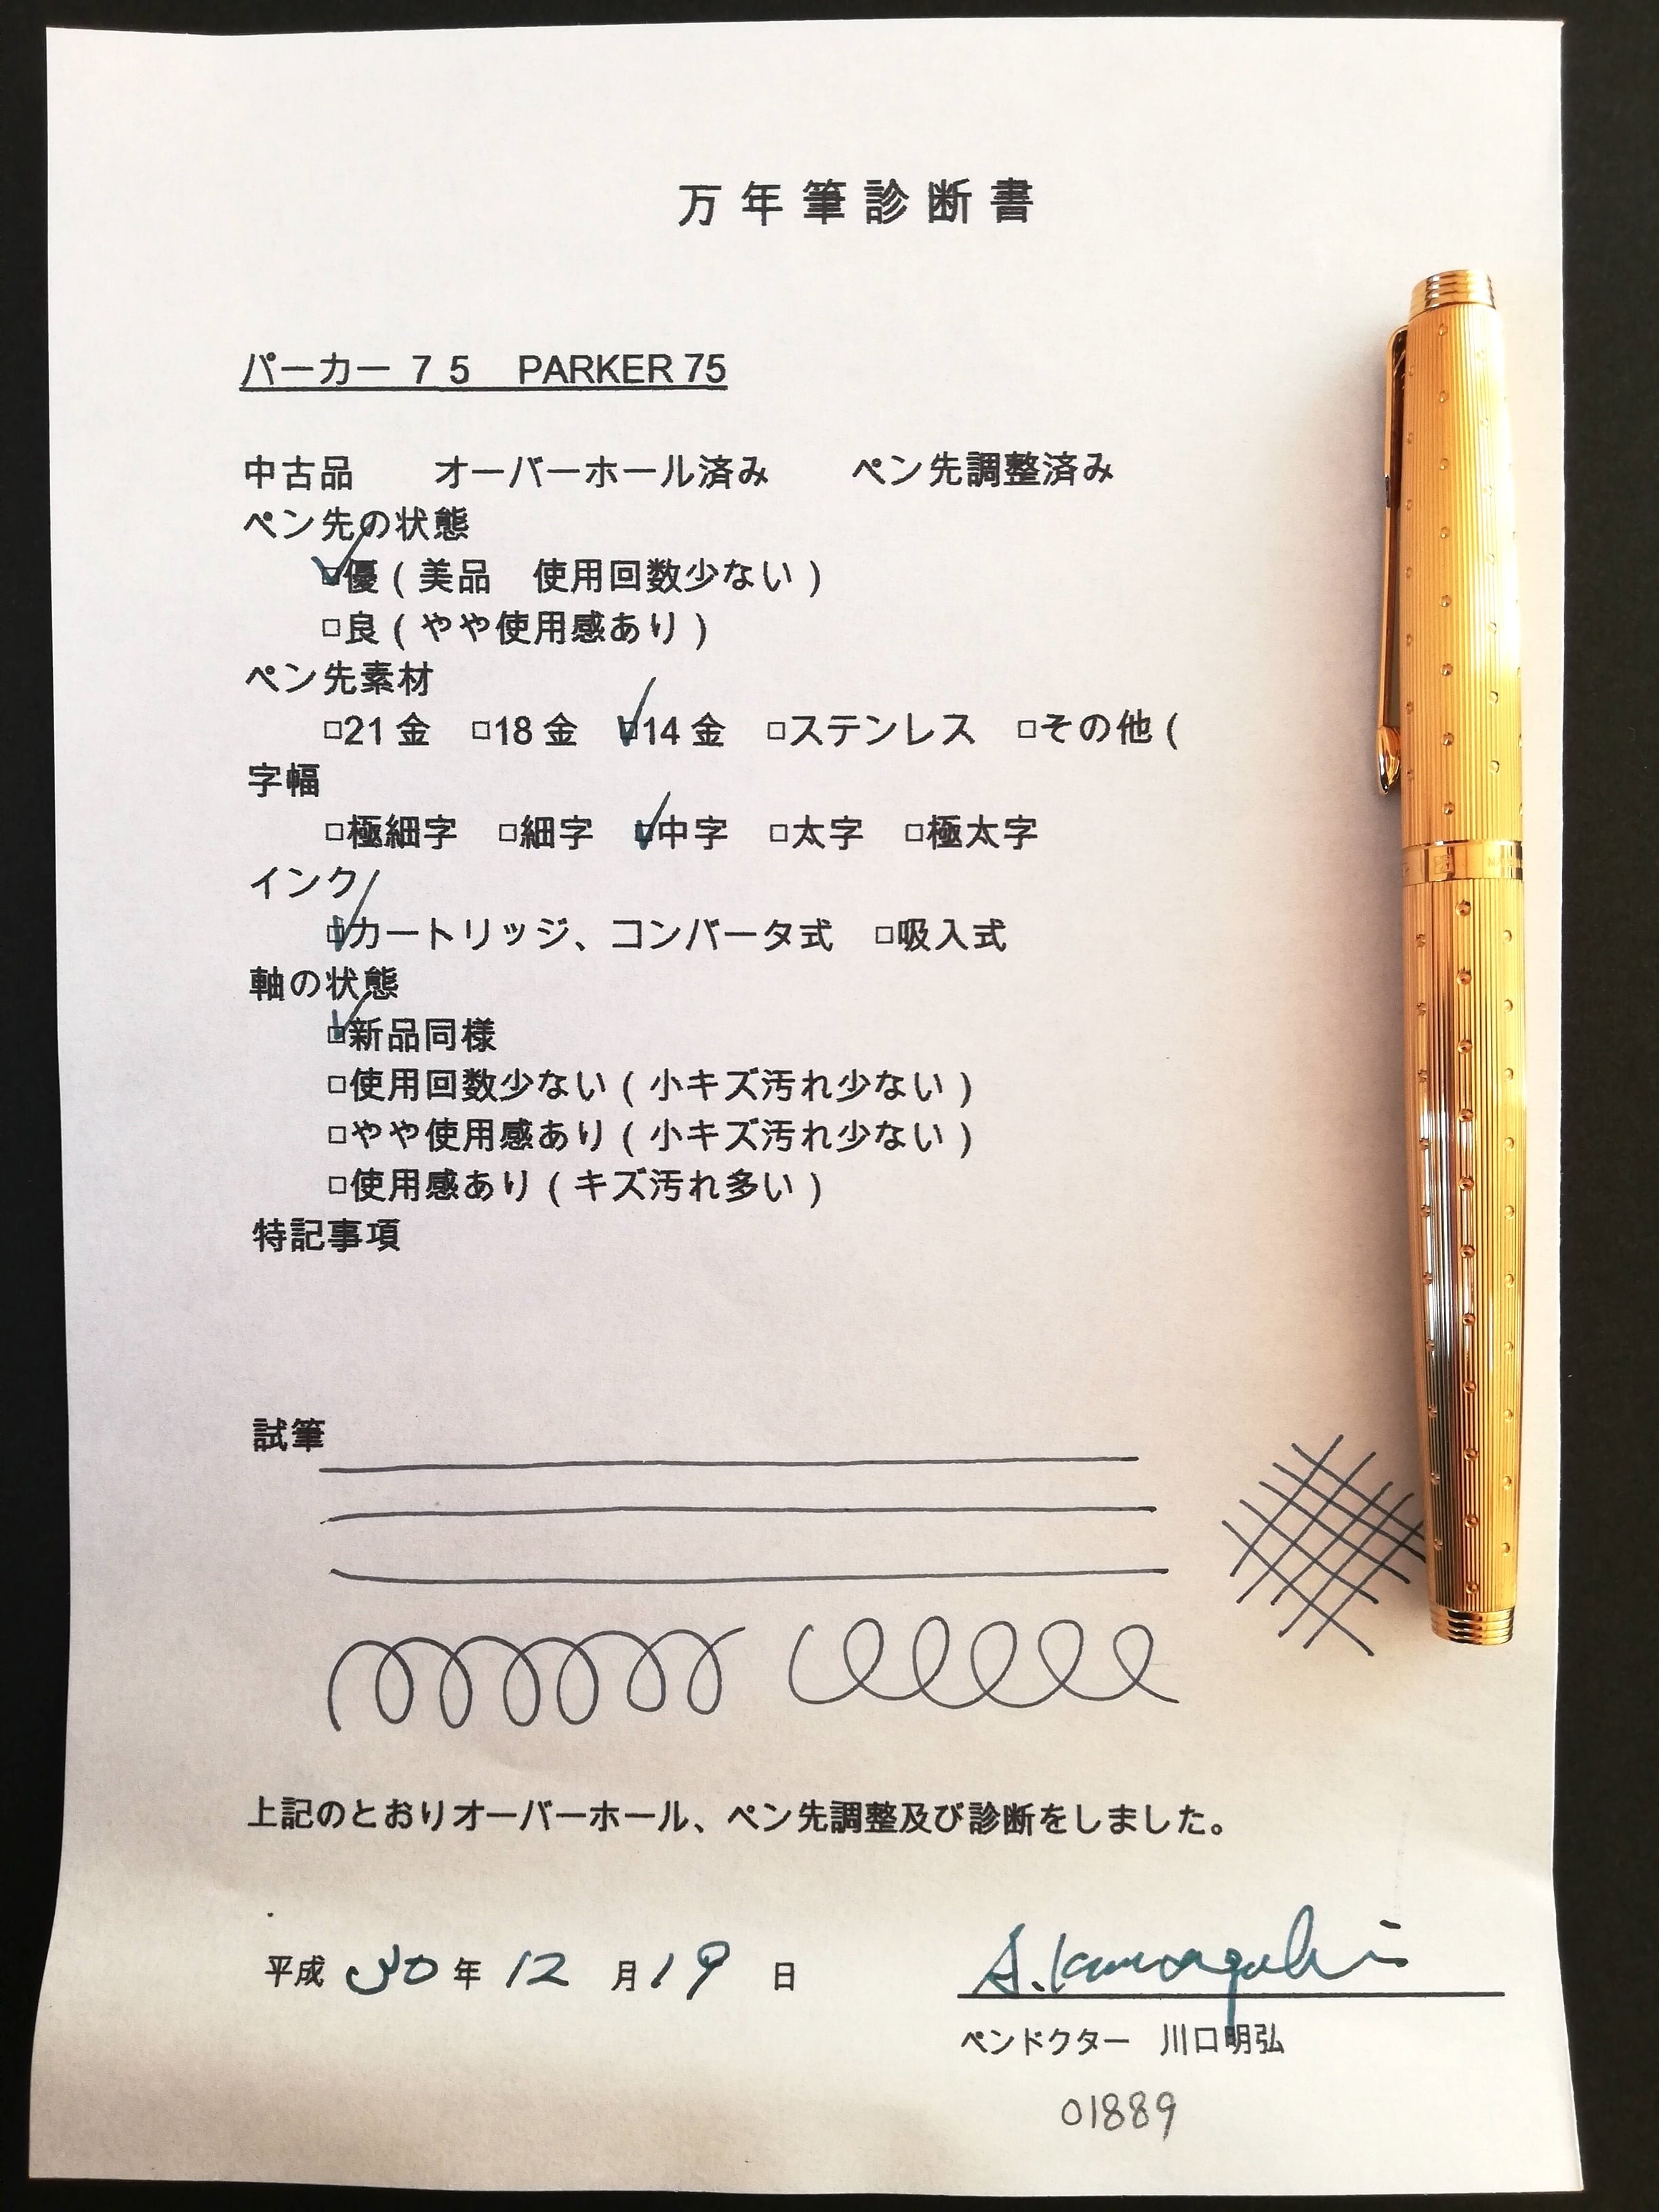 万年筆診断書
パーカー 75 PARKER 75
中古品 オーバーホール済み ペン先調整済み
ペン先の状態
☑優(美品 使用回数少ない)
□良(やや使用感あり)
ペン先素材
□21金 □18金 ☑14金 □ステンレス □その他(
字幅
□極細字 □細字 ☑中字 □太字 □極太字
インク
☑カートリッジ、コンバータ式 □吸入式
軸の状態
☑新品同様
□使用回数少ない(小キズ汚れ少ない)
□やや使用感あり(小キズ汚れ少ない)
□使用感あり(キズ汚れ多い)
特記事項
試筆
上記のとおりオーバーホール、ペン先調整及び診断をしました。
平成 30 年 12 月 19 日
A. Kawaguchi
ペンドクター 川口明弘
01889